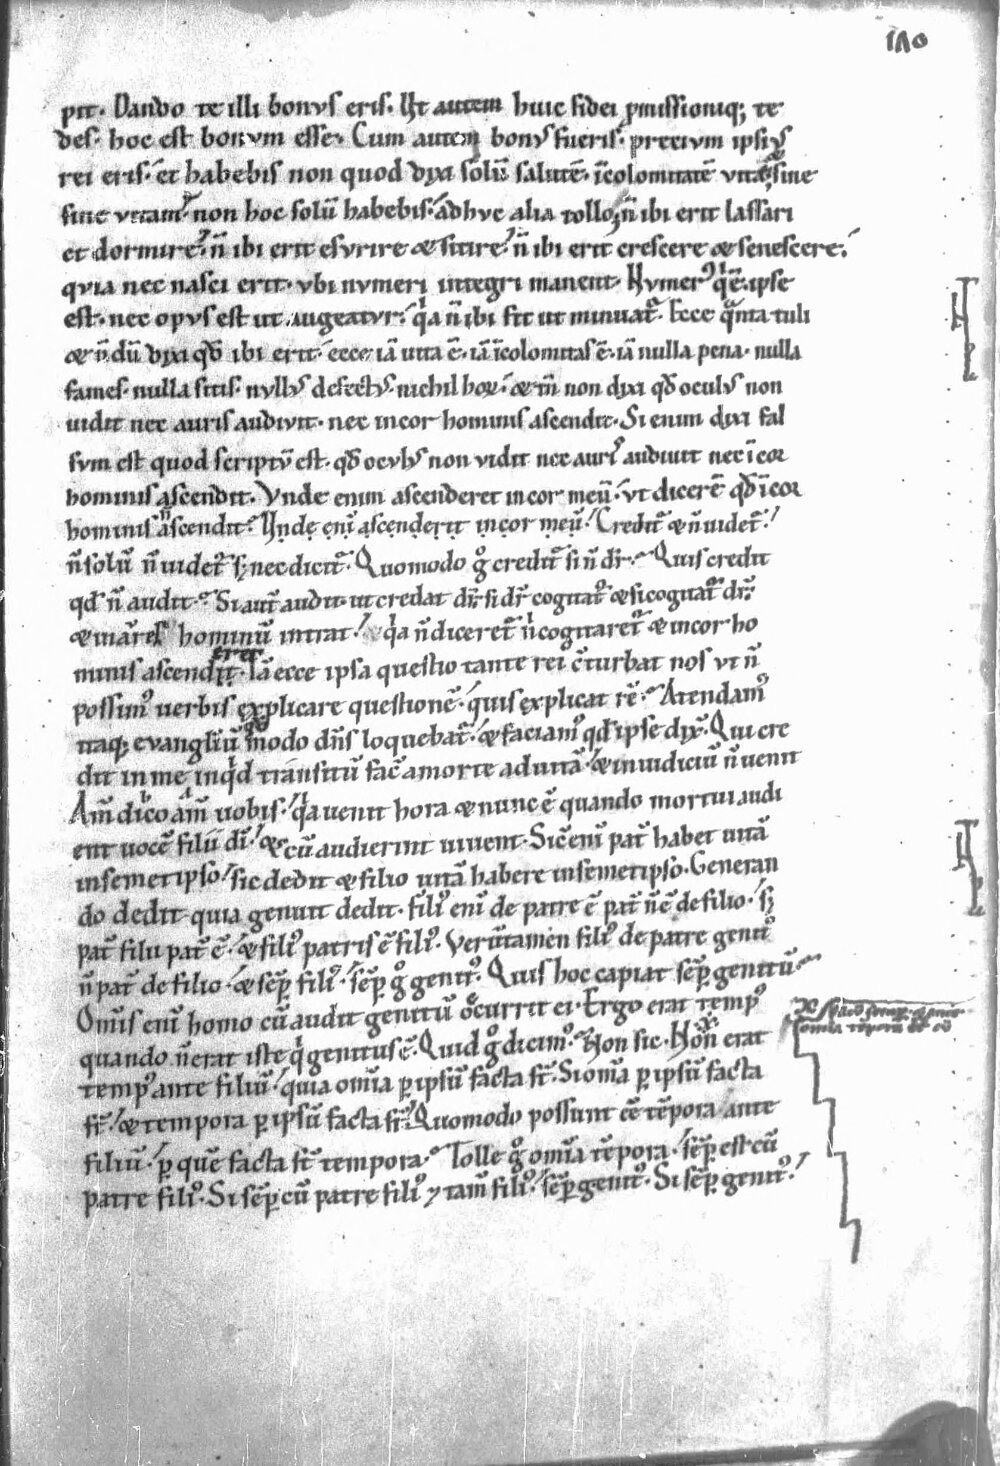 pit. Dando te illi bonus eris. Ht autem huic fidei ꝓmissioniq; te
des. hoc est bonum esse. Cum autem bonus fueris. precium ipsius
rei eris. et habebis non quod dixi solū salutē. īcolomitatē uitā sine
fine uitam. non hoc solū habebis. adhuc alia tollo. ñ ibi erit lassari
et dormire. ñ ibi erit esurire & sitire. ñ ibi erit crescere & senescere.
quia nec nasci erit. ubi numeri integri manent. Numerꝰ q̄ ē. ipse
est. nec opus est ut augeatur. qͥa ñ ibi fit ut minuat̃. Ecce qͣnta tuli
& ñdū dixi qđ ibi erit. ecce iā uita ē. iā īcolomitas ē. iā nulla pena. nulla
fames. nulla sitis. nullꝰ defectꝰ. nichil hoꝝ. & tñ non dixi qđ oculꝰ non
uidit nec auris audiuit. nec in cor hominis ascendit. Si enim dixi fal
sum est quod scriptū est. qđ oculꝰ non uidit nec aurꝭ audiuit nec ī cor
hominis ascendit. Vnde enim ascenderet in cor meū. ut dicerē qđ ī cor
hominis ñ ascendit. Vnde eni ascenderit in cor meū. Credit̃ & ñ uidet̃.
ñ solū ñ uidet̃ sꝫ nec dicit̃. Quomodo gͦ credit̃ si ñ dr̃. Quis credit
qđ ñ audit. Si aut̃ audit ut credat dr̃. si dr̃ cogitat̃. & si cogitat̃ dr̃
& in aures hominū intrat. qͥa ñ diceret̃ ñ cogitaret̃ & in cor ho
minis ascenderet. Iā ecce ipsa questio tante rei cōturbat nos ut ñ
possimꝰ uerbis explicare questionē. quis explicat rē. Atendamꝰ
itaq; euangliū qđ modo dñs loquebat̃. & faciamꝰ qđ ipse dix̃. Qui cre
dit in me inqͥd transitū fac̃ a morte ad uitā. & in iudiciū ñ uenit
Am̃ dico am̃ uobis. qͥa uenit hora & nunc ē quando mortui audi
ent uocē filii dī. & cū audierint uiuent. Sic̃ enī pat̃ habet uitā
in semetipso. sic dedit & filio uitā habere in semetipso. Generan
do dedit quia genuit dedit. filiꝰ enī de patre ē pat̃ ñ ē de filio. sꝫ
pat̃ filii pat̃ ē. & filiꝰ patris ē filiꝰ. Verūtamen filiꝰ de patre genitꝰ
ñ pat̃ de filio. & sēp filiꝰ. sēp gͦ genitꝰ. Quis hoc capiat sēp genitū.
Omīs enī homo cū audit genitū occurrit ei. Ergo erat tempꝰ
quando ñ erat iste qͥ genitus ē. Quid gͦ dicimꝰ. Non sic. Non erat
tempꝰ ante filiū. quia omīa ꝑ ipsū facta st̄. Si omīa ꝑ ipsū facta
st̄. & tempora ꝑ ipsū facta st̄. Quomodo possunt eē tēpora ante
filiū. ꝑ quē facta st̄ tempora. Tolle gͦ omīa tēpora. sēp est cū
patre filiꝰ. Si sēp cū patre filiꝰ ⁊ tam̃ filiꝰ. sēp genitꝰ. Si sēp genitꝰ.